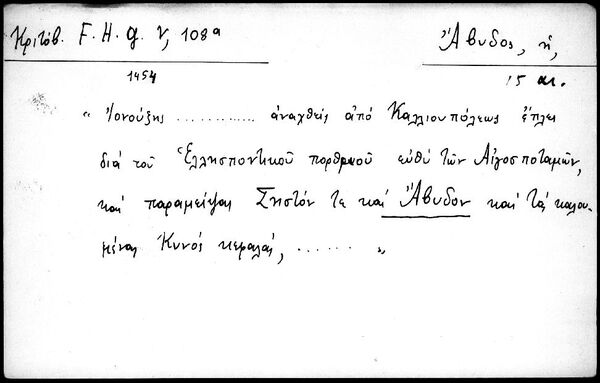 Κριτόβ. F. H. g. V, 108ª
Ἄβυδος, ἡ,
1454
15 αι.
“ Ἰονούζης ............. ἀναχθείς ἀπό Καλλιουπόλεως ἔπλει
διά τοῦ Ἑλλησποντικοῦ πορθμοῦ εὐθύ τῶν Αἰγοσποταμῶν,
καί παραμείψας Σηστόν τε καί Ἄβυδον καί τάς καλου-
μένας Κυνός κεφαλάς, ...... „